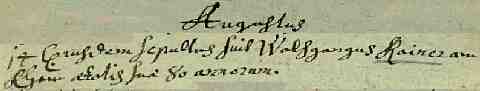 Augustus
14 Eiusdem sepultus fuit Wolfgangus Rainer am
ætatis suæ 80 annorum.